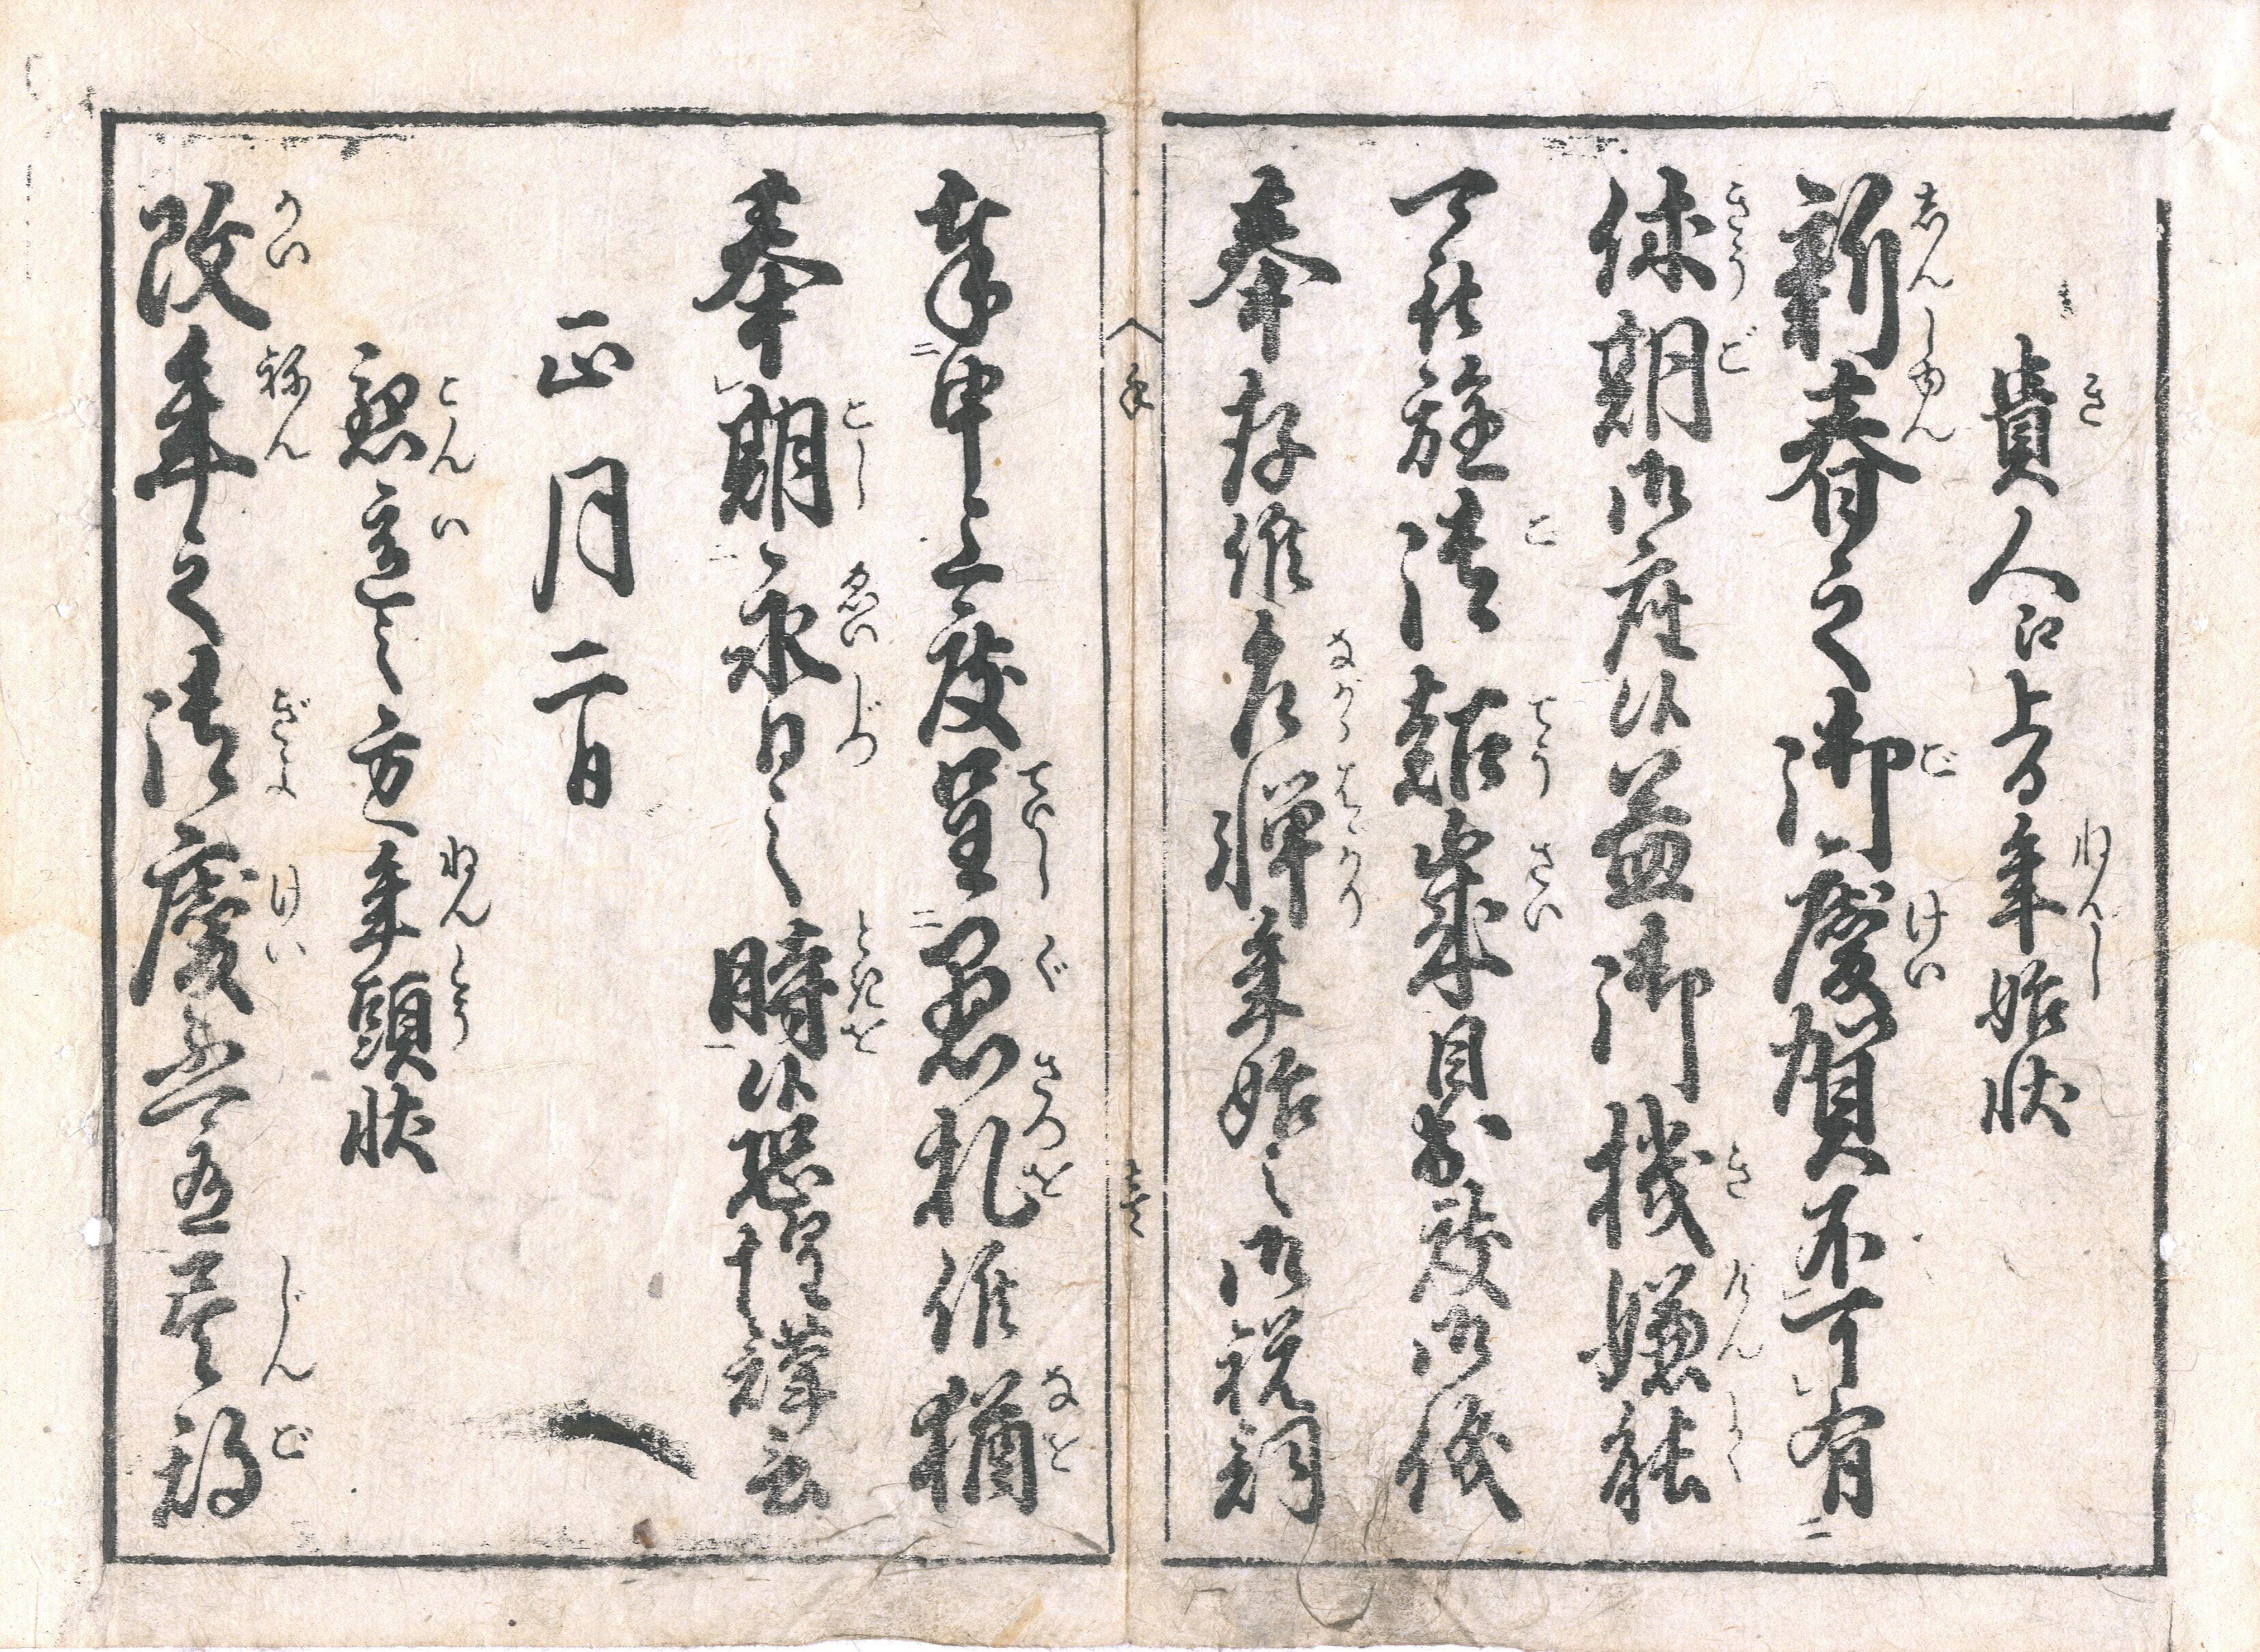 貴人江上る年始状
新春之御慶賀不可有
休期御座候益御機嫌能
可被遊御超歳目出度御儀
奉存候乍憚年始之御祝詞
奉申上度呈愚札候猶
奉期永日之時候恐惶謹言
正月二日
懇意之方へ年頭状
改年之御慶不可有尽期